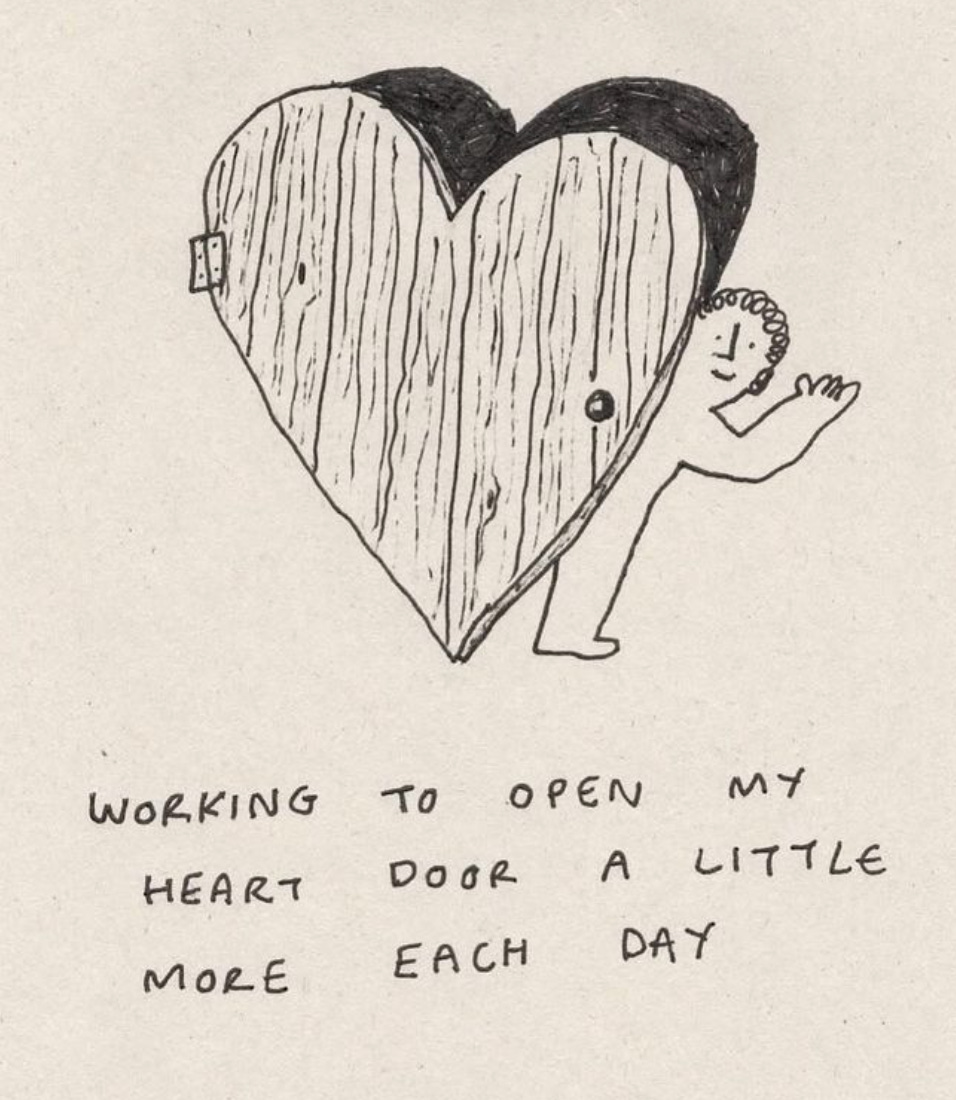 WORKING TO OPEN MY
HEART DOOR A LITTLE
MORE EACH DAY